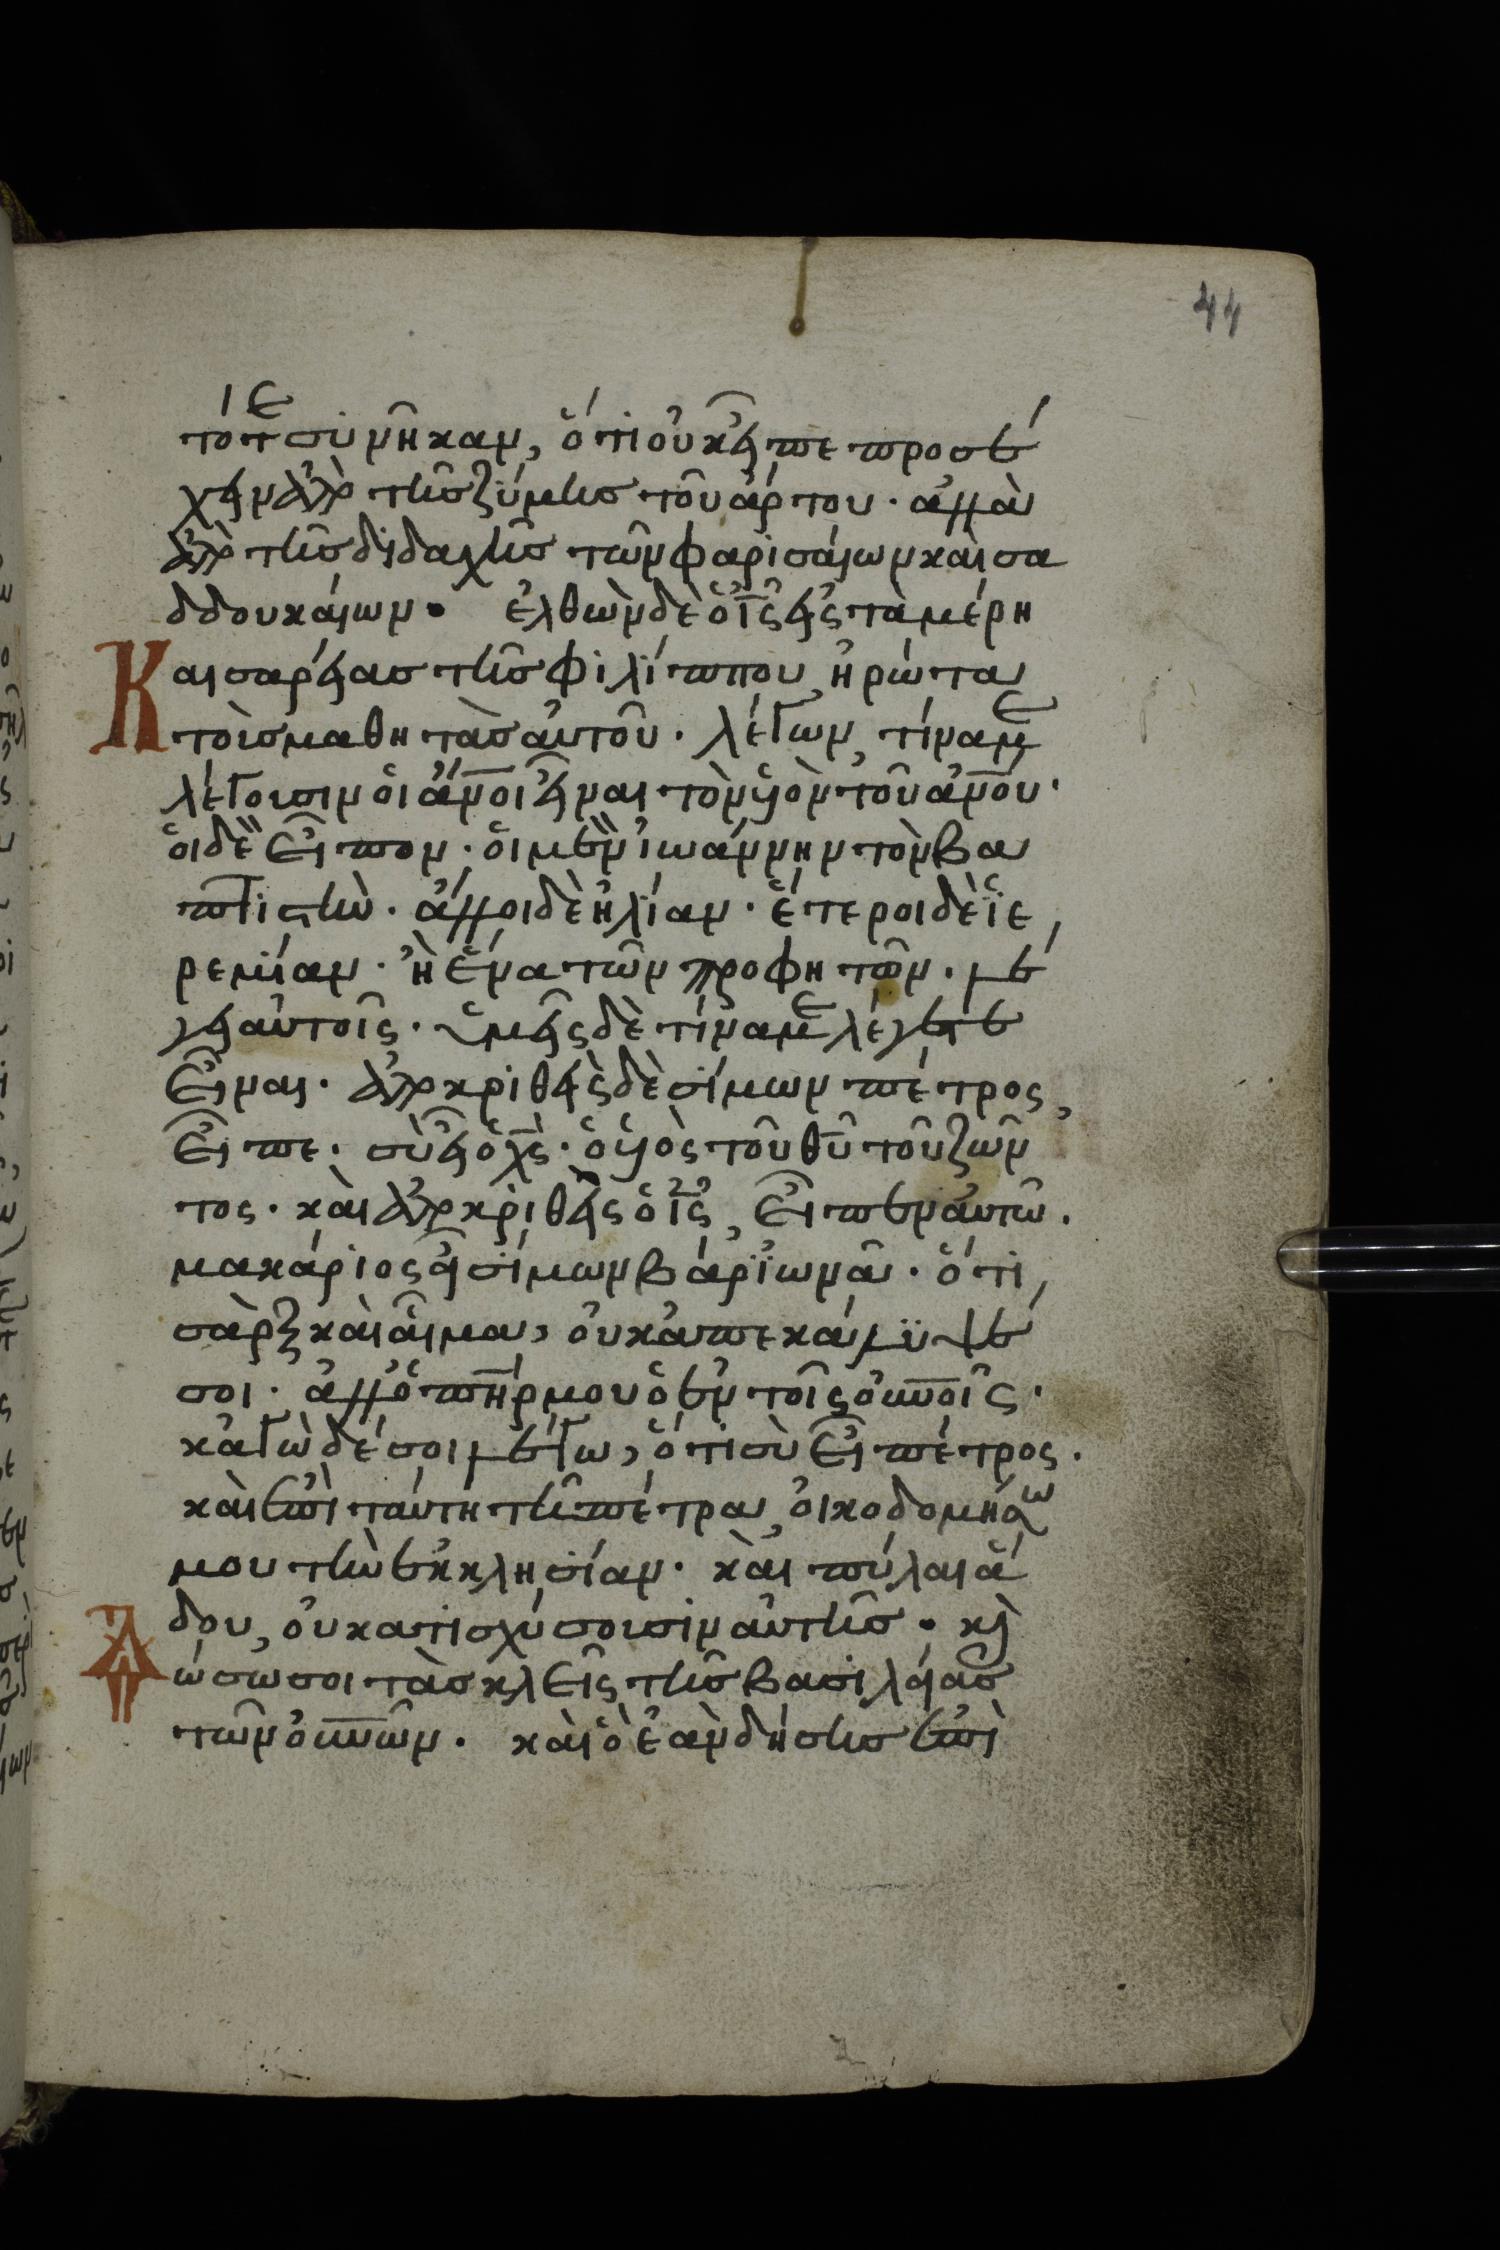 44
τότε συνῆκαν, ὅτι οὐκ εἶπε προσέ
χειν ἀπὸ τῆς ζύμης τοῦ ἄρτου. ἀλλὰ
ἀπὸ τῆς διδαχῆς τῶν φαρισαίων καὶ σα
δδουκαίων. ἐλθὼν δὲ ὁ ις εἰς τὰ μέρη
Καισαρείας τῆς φιλίππου, ἠρώτα
τοὺς μαθητὰς αὐτοῦ. λέγων, τίνα με
λέγουσιν οἱ ἄνοι εἶναι τὸν υἱὸν τοῦ ανου.
οἱ δὲ εἶπον. οἱ μὲν ἰωάννην τὸν βα
πτιστὴν. ἄλλοι δὲ ἠλίαν. ἕτεροι δὲ ἱε
ρεμίαν. ἢ ἕνα τῶν προφητῶν. λέ
γει αὐτοῖς. ὑμεῖς δὲ τίνα με λέγετε
εἶναι. ἀποκριθεὶς δὲ σίμων πέτρος,
εἶπε. σὺ εἶ ὁ χς. ὁ υἱὸς τοῦ θυ τοῦ ζῶν
τος. καὶ ἀποκριθεὶς ὁ ις, εἶπεν αὐτῶ.
μακάριος εἶ σίμων βάρϊωνᾶ. ὅτι,
σὰρξ καὶ αἷμα, οὐκ ἀπεκάλυψέ
σοι. ἀλλ' ὁ πηρ μου ὁ ἐν τοῖς οὐνοῖς.
κἀγὼ δέ σοι λέγω, ὅτι σὺ εἶ πέτρος.
καὶ ἐπὶ ταύτη τῆ πέτρα, οἰκοδομήσω
μου τὴν ἐκκλησίαν. καὶ πύλαι ἅ
δου, οὐ κατισχύσουσιν αὐτῆς. κὶ
Δώσω σοι τὰς κλεῖς τῆς βασιλείας
τῶν οὐνῶν. καὶ ὃ ἐὰν δήσης ἐπὶ